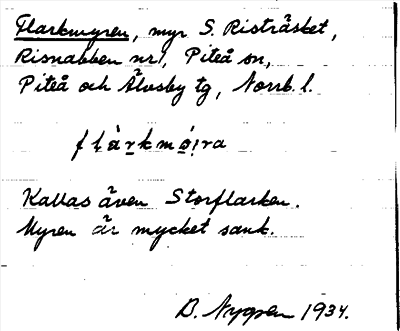 Flarkmyren, myr S. Risträsket,
Risnabben nr 1, Piteå sn,
Piteå och Älvsby tg, Norrb. l.
flạ̀rkmø̣ira
Kallas även Storflarken.
Myren är mycket sank.
D. Nygren 1934.